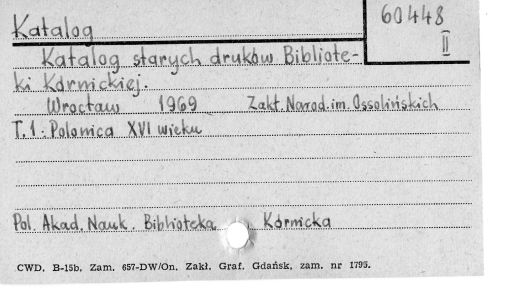 Katalog
60448
II
Katalog starych druków Bibliote-
ki Kórnickiej.
Wrocław 1969 Zakł. Narod. im. Ossolińskich
T. 1: Polonica XVI wieku
Pol. Akad. Nauk. Biblioteka Kórnicka
CWD, B-15b, Zam. 657-DW/On. Zakł. Graf. Gdańsk, zam. nr 1795.